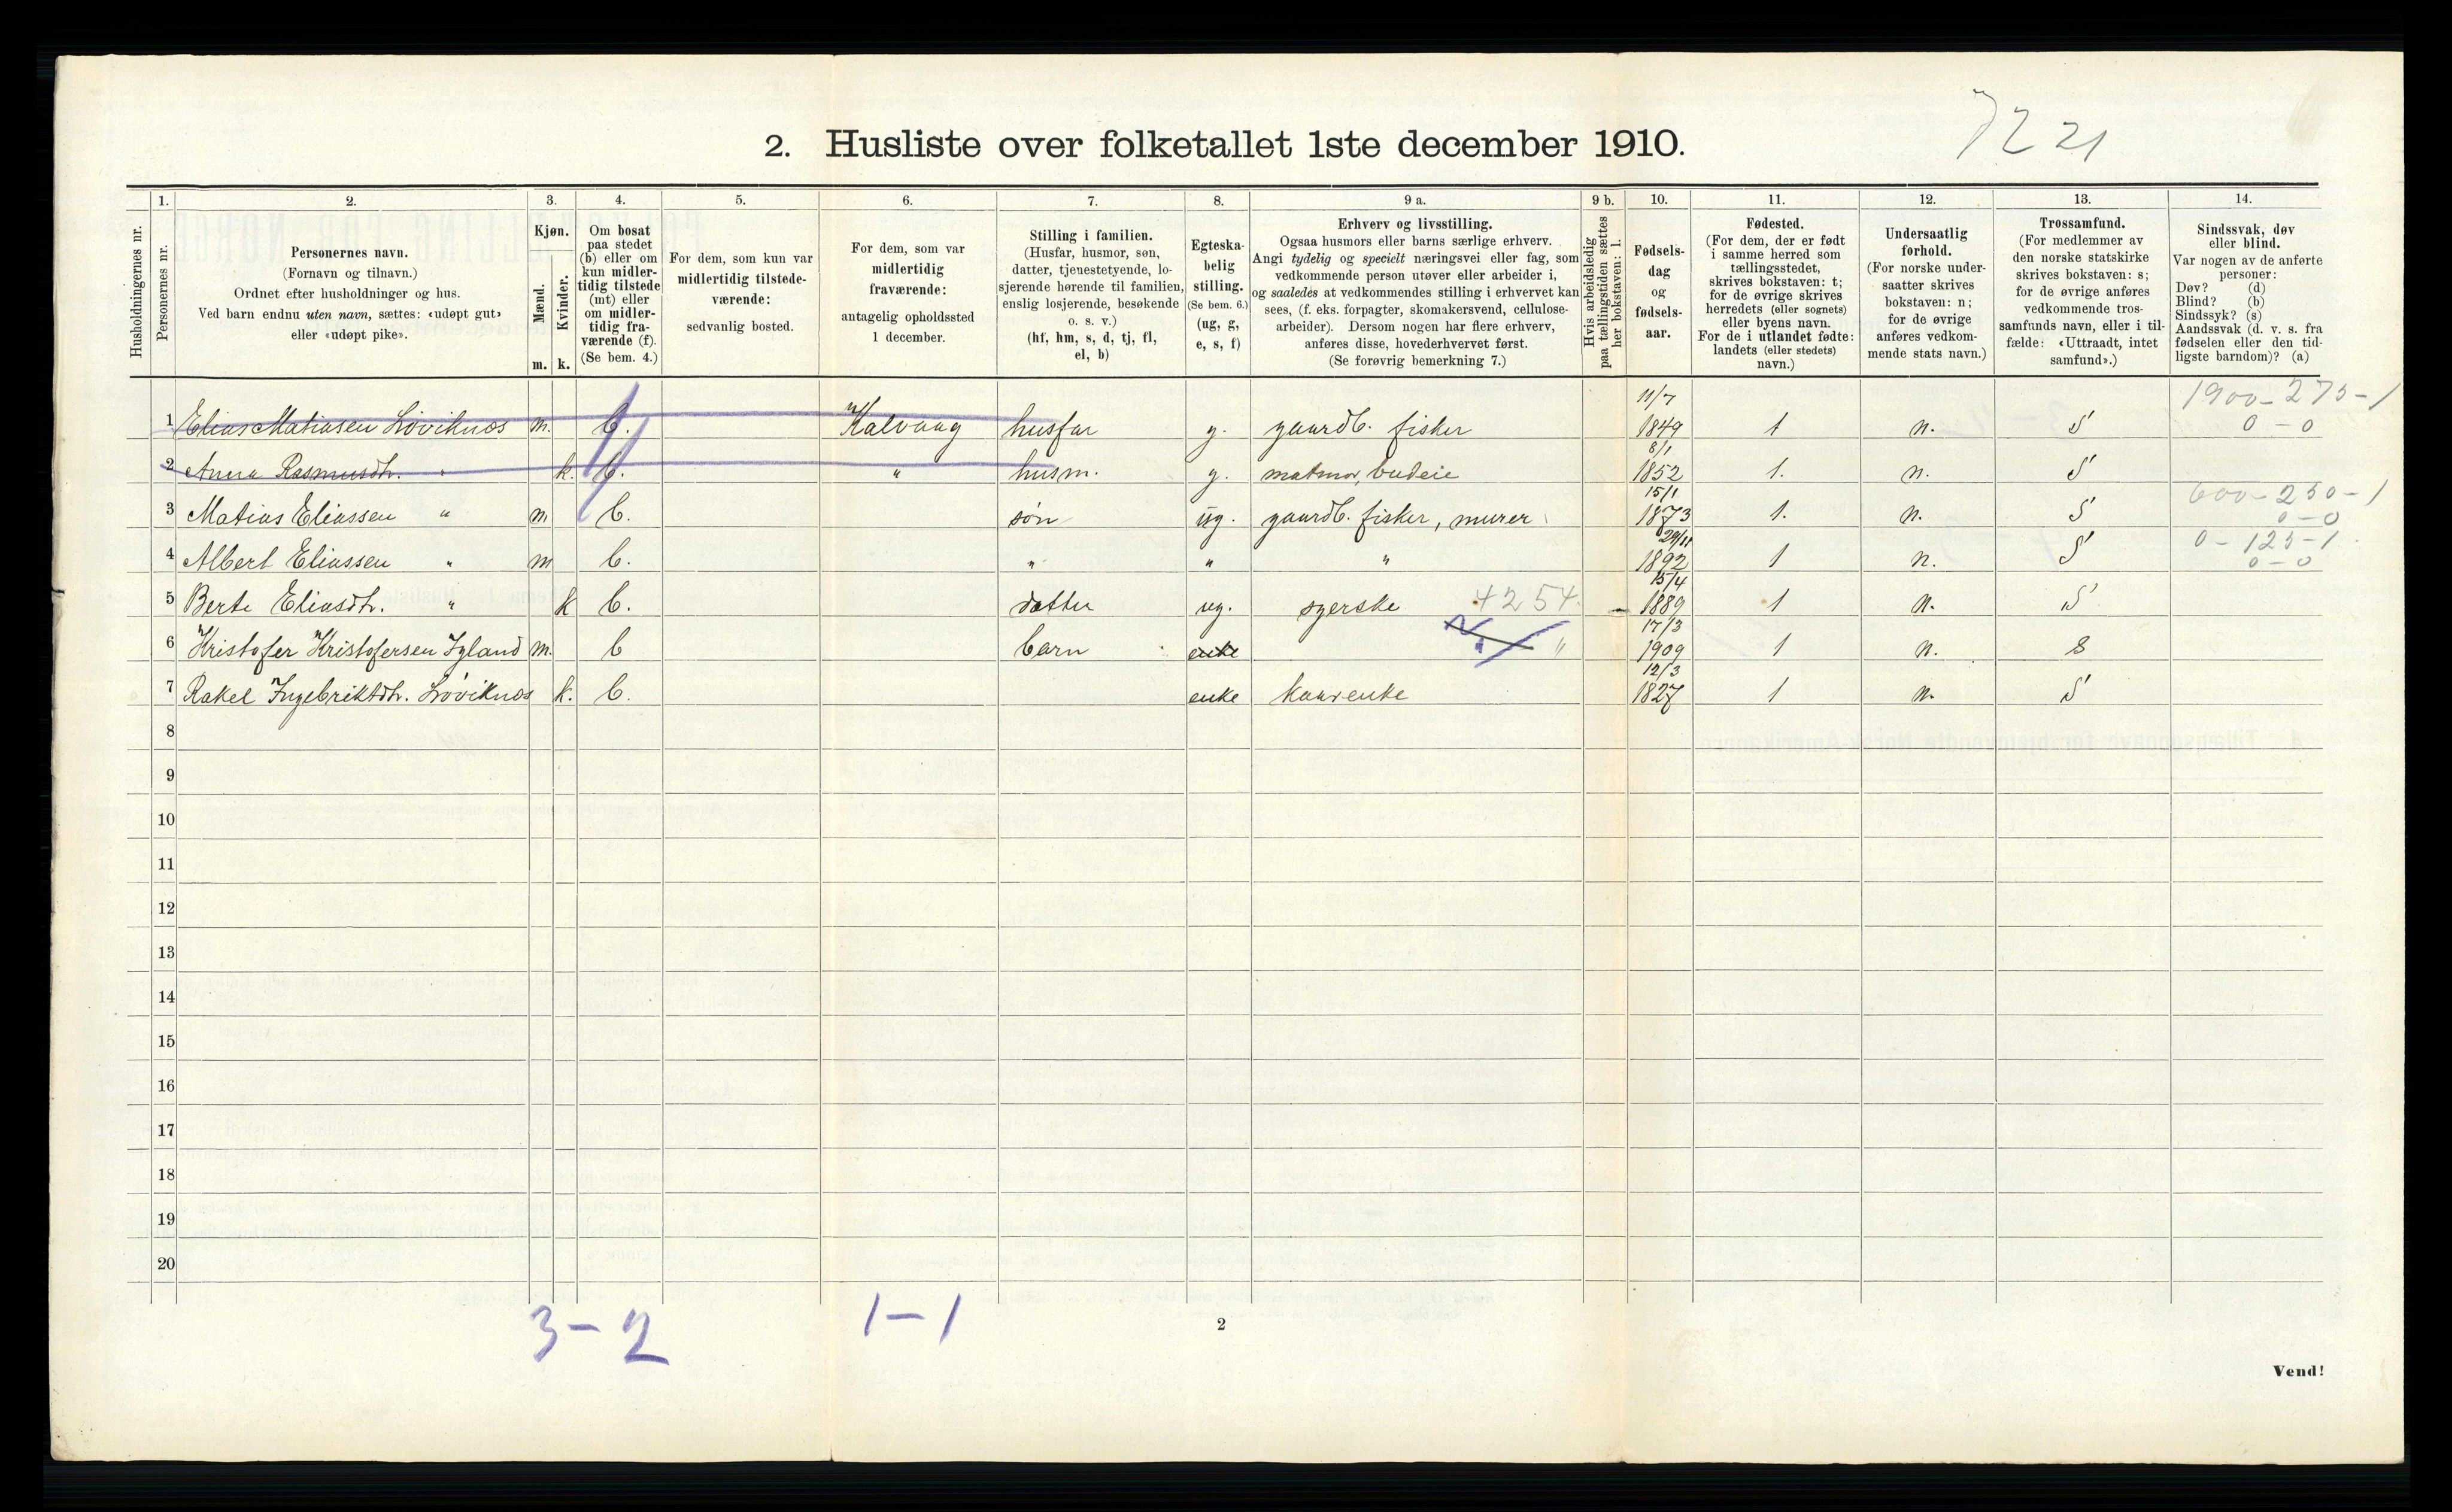 7221
2. Husliste over folketallet 1ste december 1910.
1. 2. 3. 4. 5. 6. 7. 8. 9 a. 9 b. 10. 11. 12. 13. 14.
Husholdningernes nr.
Personernes nr.
Personernes navn.
(Fornavn og tilnavn.)
Ordnet efter husholdninger og hus.
Ved barn endnu uten navn, sættes: «udøpt gut»
eller «udøpt pike».
Kjøn.
Mænd.
Kvinder.
m. k.
Om bosat
paa stedet
(b) eller om
kun midler-
tidig tilstede
(mt) eller
om midler-
tidig fra-
værende (f).
(Se bem. 4.)
For dem, som kun var
midlertidig tilstede-
værende:
sedvanlig bosted.
For dem, som var
midlertidig
fraværende:
antagelig opholdssted
1 december.
Stilling i familien.
(Husfar, husmor, søn,
datter, tjenestetyende, lo-
sjerende hørende til familien,
enslig losjerende, besøkende
o. s. v.)
(hf, hm, s, d, tj, fl,
el, b)
Egteska-
belig
stilling.
(Se bem. 6.)
(ug, g,
e, s, f)
Erhverv og livsstilling.
Ogsaa husmors eller barns særlige erhverv.
Angi tydelig og specielt næringsvei eller fag, som
vedkommende person utøver eller arbeider i,
og saaledes at vedkommendes stilling i erhvervet kan
sees, (f. eks. forpagter, skomakersvend, cellulose-
arbeider). Dersom nogen har flere erhverv,
anføres disse, hovederhvervet først.
(Se forøvrig bemerkning 7.)
Hvis arbeidsledig
paa tællingstiden sættes
her bokstaven: l.
Fødsels-
dag
og
fødsels-
aar.
Fødested.
(For dem, der er født
i samme herred som
tællingsstedet,
skrives bokstaven: t;
for de øvrige skrives
herredets (eller sognets)
eller byens navn.
For de i utlandet fødte:
landets (eller stedets)
navn.)
Undersaatlig
forhold.
(For norske under-
saatter skrives
bokstaven: n;
for de øvrige
anføres vedkom-
mende stats navn.)
Trossamfund.
(For medlemmer av
den norske statskirke
skrives bokstaven: s;
for de øvrige anføres
vedkommende tros-
samfunds navn, eller i til-
fælde: «Uttraadt, intet
samfund».)
Sindssvak, døv
eller blind.
Var nogen av de anførte
personer:
Døv? (d)
Blind? (b)
Sindssyk? (s)
Aandssvak (d. v. s. fra
fødselen eller den tid-
ligste barndom)? (a)
11/7 1900-275-1
1 Elias Matiasen Løviknes m. b. Kalvaag husfar g. gaardb. fisker 1849 1 n. S 0-0
8/1
2 Anna Rasmusdtr. " k. b. " husm. g. matmor, budeie 1852 1. n. S
15/1 600-250-1
3 Matias Eliassen " m b. søn ug. gaardb. fisker, murer 1873 1. n. S 0-0
29/11 0-125-1
4 Albert Eliassen " m b. " " " 1892 1 n. S 0-0
15/4
5 Berte Eliasdtr. " k b. datter ug. syerske 4254. 1889 1 n. S
17/3
6 Kristofer Kristofersen Igland m. b barn enke " 1909 1 n. s
12/3
7 Rakel Ingebriktdtr. Løviknes k. b. enke kaarenke 1827 1 n. S
8
9
10
11
12
13
14
15
16
17
18
19
20
3-2 1-1
2
Vend!